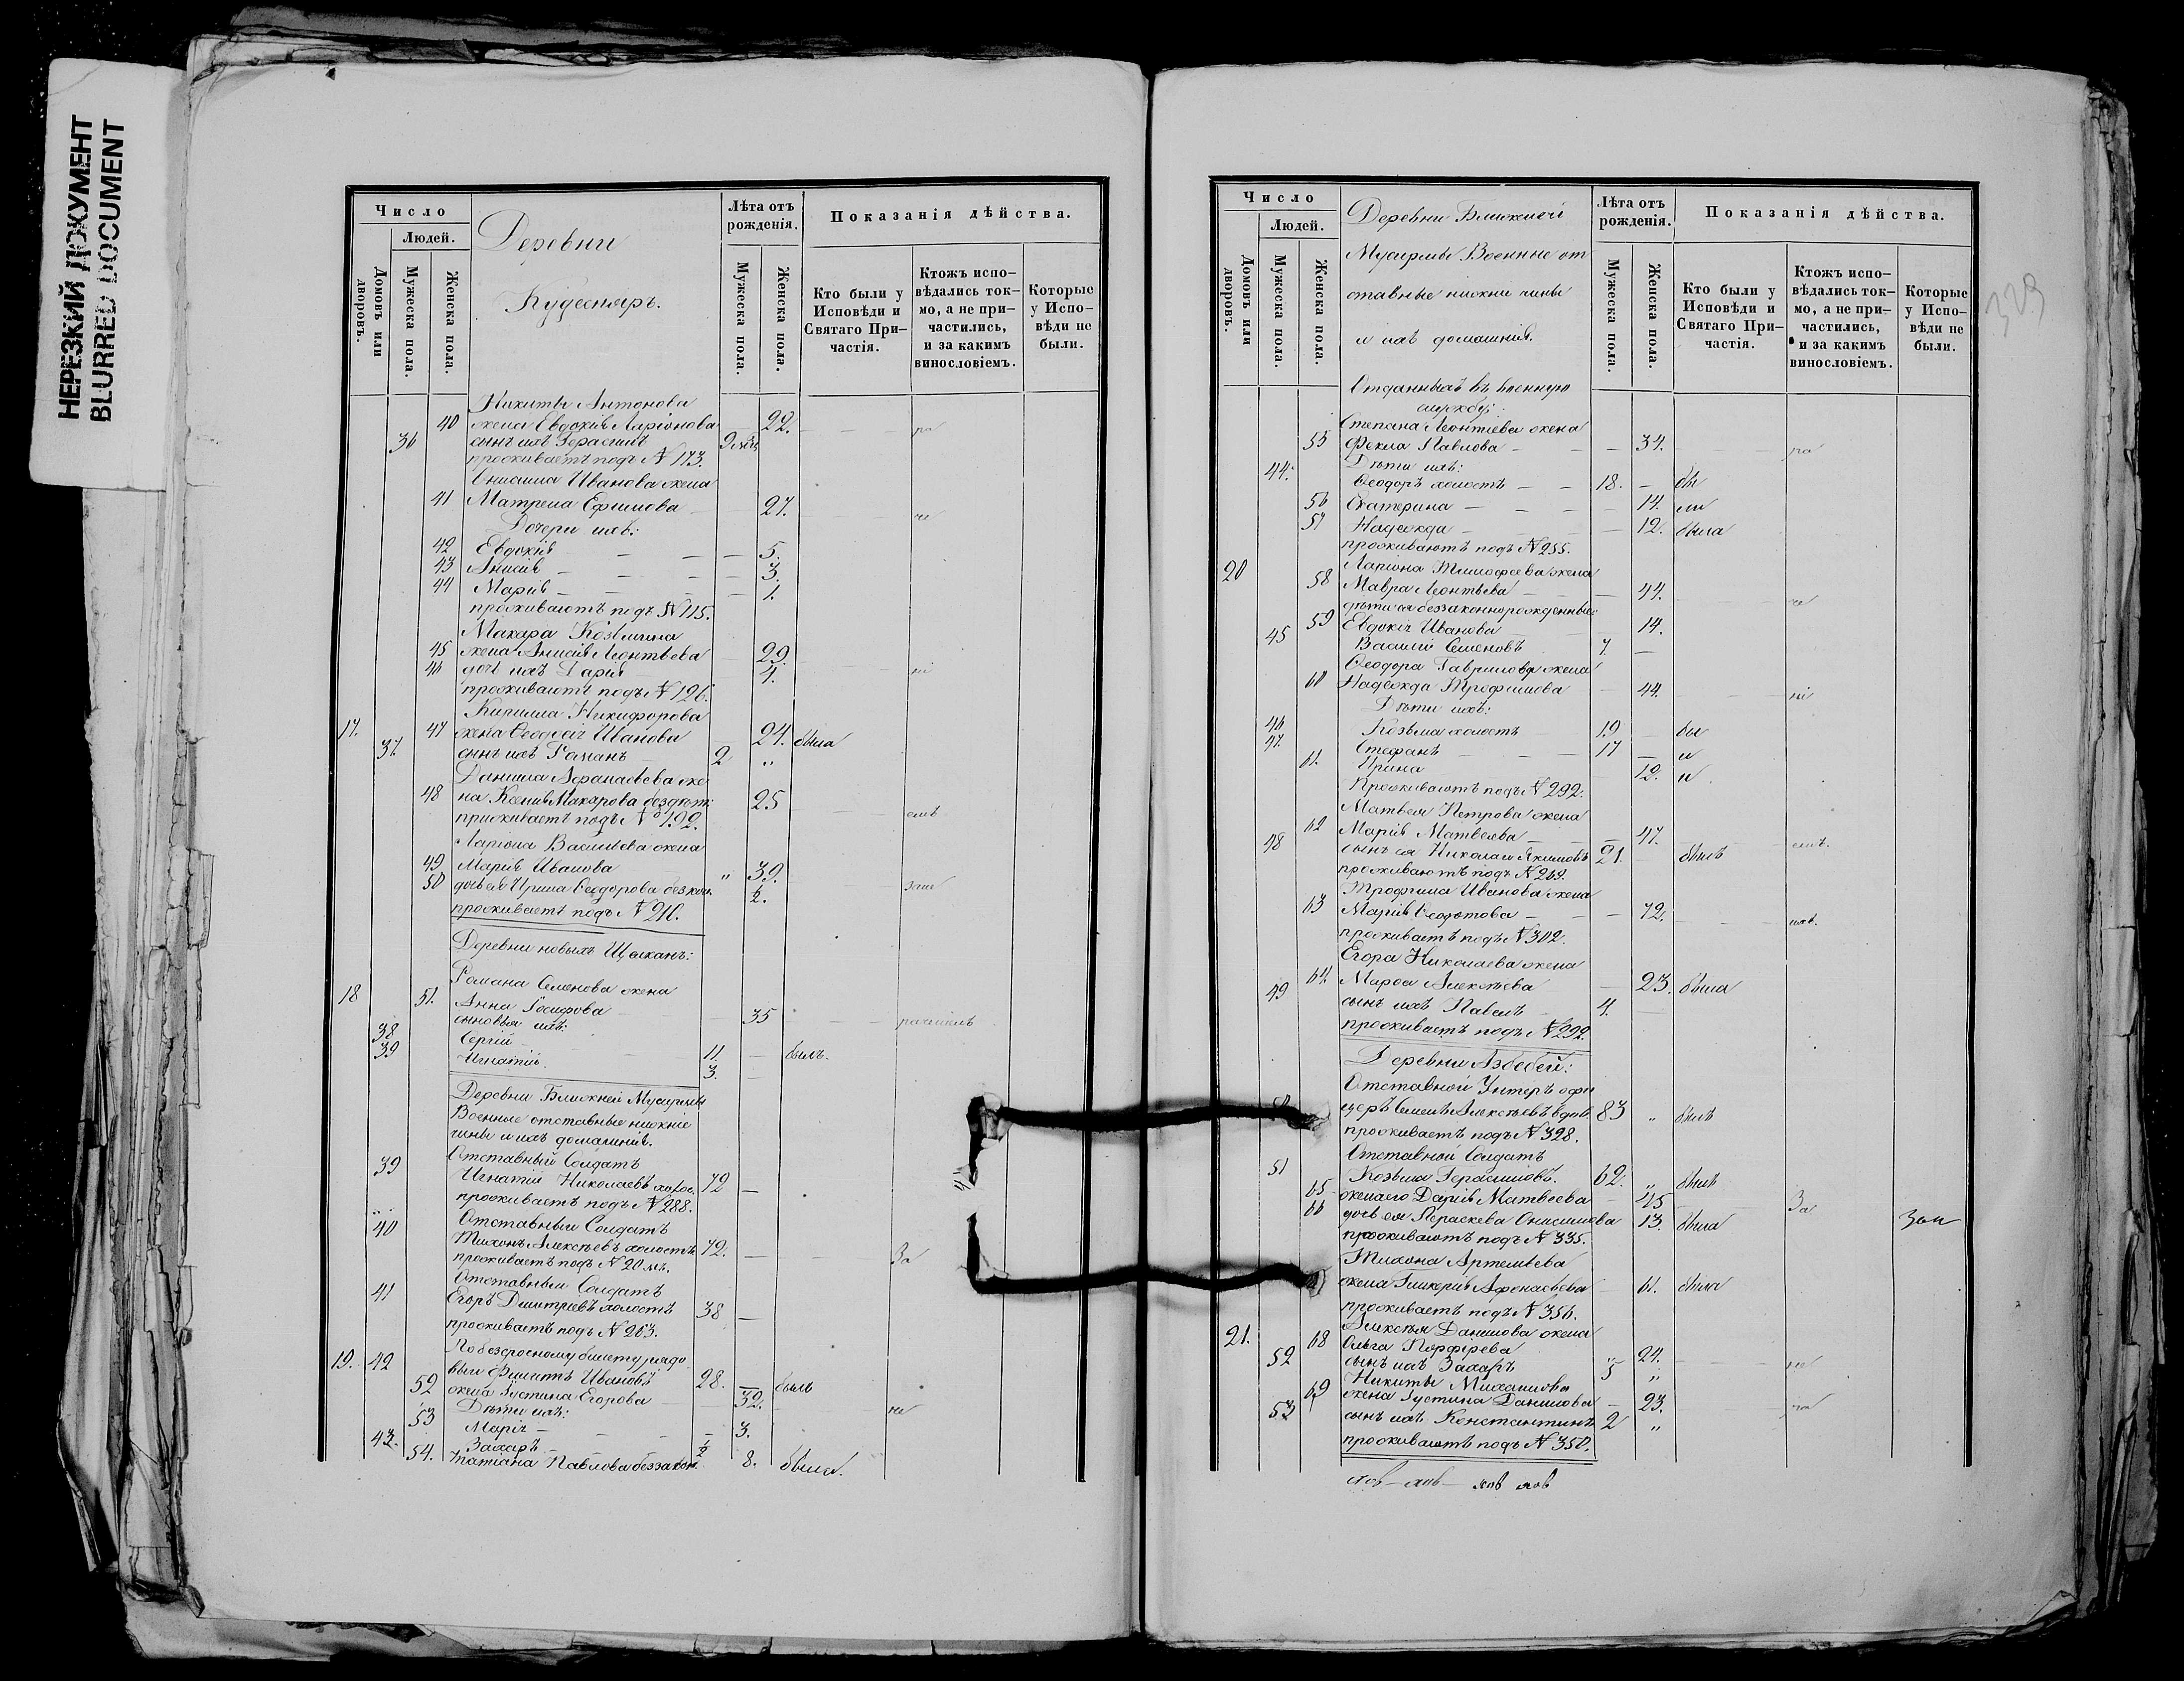 НЕРЕЗКИЙ ДОКУМЕНТ
BLURRED DOCUMENT
Число
Людей.
Домовъ или дворовъ.
Мужеска пола.
Женска пола.
Деревни
Кудесняръ.
Лѣта отъ рожденія.
Мужеска пола.
Женска пола.
Показанія дѣйства.
Кто были у Исповѣди и Святаго Причастія.
Ктожъ исповѣдались токмо, а не причастились, и за какимъ винословіемъ.
Которые у Исповѣди не были.
Никиты Антонова
40 жена Евдокія Ларіонова — 22. — — ра
36 сынъ ихъ Герасимъ 9 мѣся
проживаетъ подъ № 173.
Онисима Иванова жена
41 Матрена Ефимова — 27.
Дочери ихъ:
42 Евдокія — — — 5.
43 Анисія — — — 3.
44 Марія — — — 1.
проживаютъ подъ № 115.
Макара Козьмина
45 жена Анисія Леонтьева 29.
46 дочь ихъ Дарія 1.
проживаютъ подъ № 126.
Кирилла Никифорова
17. 47 жена Ѳеодосія Иванова 24. была
37. сынъ ихъ Романъ 2 „
Данила Аѳанасьева же
48 на Ксенія Макарова бездѣтн: 25
проживаетъ подъ № 192.
Ларіона Васильева жена
49 Марія Иванова „ 39.
50 дочь ея Ирина Ѳеодорова безкон. 1/2.
проживаетъ подъ № 210.
Деревни новыхъ Щелканъ:
Романа Семенова жена
18 51. Анна Іосифова — — 35
сыновья ихъ:
38 Сергій — — 11. — былъ.
39 Игнатій 3. —
Деревни Ближней Мусирмы
Военные отставные нижніе
чины и ихъ домашнія.
Отставный Солдатъ
39 Игнатій Николаевъ холос. 72 —
проживаетъ подъ № 288.
Отставный Солдатъ
40 Тихонъ Алексѣевъ холостъ 72. — — За
проживаетъ подъ №
Отставный Солдатъ
41 Егоръ Дмитріевъ холостъ 38 —
проживаетъ подъ № 263.
По безсрочному билету рядо
19. 42 вый Филиппъ Ивановъ 28. — былъ
52 жена Іустина Егорова — 32. — не
Дѣти ихъ:
53 Марія — — — 3.
43. Захаръ — 1/2
54. Татіана Павлова беззакон. 8. была.
Число
Людей.
Домовъ или дворовъ.
Мужеска пола.
Женска пола.
Деревни Ближней
Мусирмы Военные от
ставные нижніе чины
и ихъ домашнія.
Лѣта отъ рожденія.
Мужеска пола.
Женска пола.
Показанія дѣйства.
Кто были у Исповѣди и Святаго Причастія.
Ктожъ исповѣдались токмо, а не причастились, и за какимъ винословіемъ.
Которые у Исповѣди не были.
329
Отданныхъ въ военную
службу:
Степана Леонтіева жена
55 Ѳекла Павлова — — 34. — ра
Дѣти ихъ:
44. Ѳеодоръ холостъ — — 18. — бы
56 Екатерина — — — 14. ли
57 Надежда — — 12. была
проживаютъ подъ № 255.
Ларіона Тимоѳеева жена
20 58 Мавра Леонтьева — — 44.
дѣти ея беззаконнорожденные
59 Евдокія Иванова — 14.
45 Василій Семеновъ 7. —
Ѳеодора Гаврилова жена
60 Надежда Трофимова — 44.
Дѣти ихъ:
46 Козьма холостъ 19 — бы
47. Стефанъ — — 17 — и
61. Ирина 12. и
Проживаютъ подъ № 292.
Матвея Петрова жена
62 Марія Матвеева — — 47.
48 сынъ ея Николай Якимовъ 21. — былъ
проживаютъ подъ № 269.
Трофима Иванова жена
63 Марія Ѳедотова — — — 72.
проживаетъ подъ № 302.
Егора Николаева жена
64. Марѳа Алексѣева — 23. была
49 сынъ ихъ Павелъ — 4. —
проживаетъ подъ № 292.
Деревни Азбебей:
Отставной Унтеръ офи
50 церъ Семенъ Алексѣевъ вдов. 83 „ былъ
проживаетъ подъ № 328.
Отставной Солдатъ
51 Козьма Герасимовъ. 62. „ былъ
65 жена его Дарія Матвеева — 45 — За
66 дочь ея Параскева Онисимова 13. была
проживаютъ подъ № 335.
Тихона Артемьева
жена Гликерія Аѳонасьева — 61. была
проживаетъ подъ № 356.
Алексѣя Данилова жена
21. 68 Ольга Порфирева „ 24.
52 сынъ ихъ Захаръ 5 „
Никиты Михаилова
69 жена Іустина Данилова — 23.
53 сынъ ихъ Константинъ 2 „
проживаютъ подъ № 350.